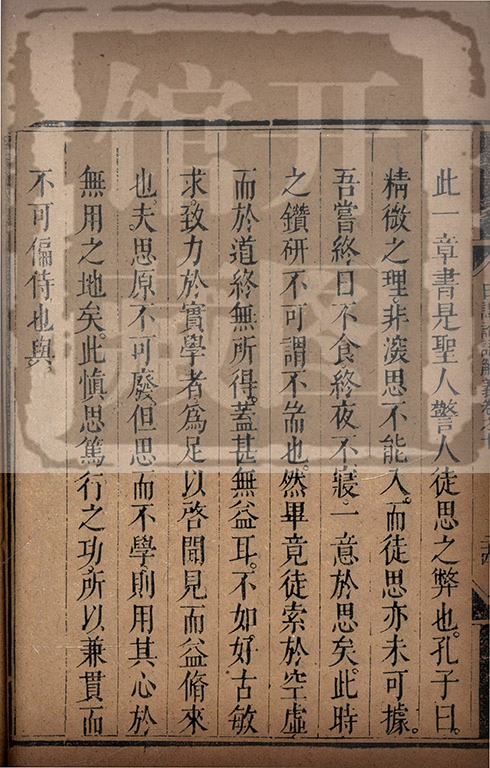 此一章書是聖人警人徒思之弊也。孔子曰。
精微之理。非深思不能入。而徒思亦未可據。
吾嘗終日不食終夜不寢。一意於思矣。此時
之鑽研不可謂不耑也。然畢竟徒索於空虛
而於道終無所得。蓋甚無益耳。不如好古敏
求。致力於實學者。為足以啓聞見而益脩來
也。夫思原不可廢。但思而不學。則用其心於
無用之地矣。此慎思篤行之功。所以兼貫而
不可偏恃也與